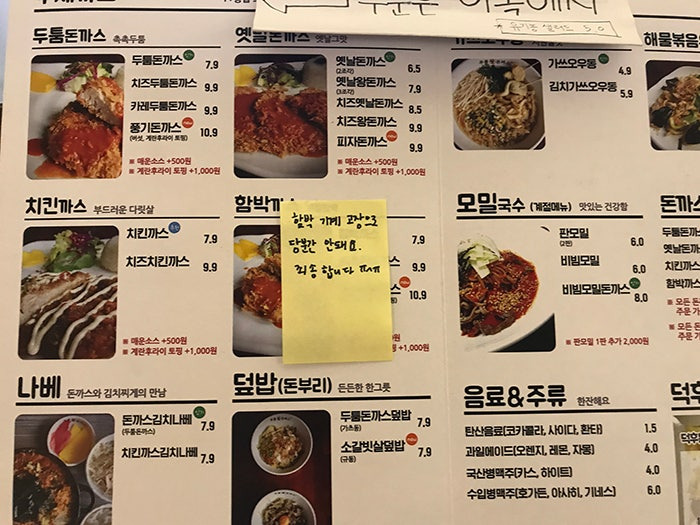 주문은 이쪽에서
유기농 샐러드 5.0
두툼돈까스 촉촉두툼
두툼돈까스 7.9
치즈두툼돈까스 9.9
카레두툼돈까스 9.9
풍기돈까스 10.9
(버섯, 계란후라이 토핑)
※ 매운소스 +500원
※ 계란후라이 토핑 +1,000원
옛날돈까스 옛날그맛
옛날돈까스 6.5
(2조각)
옛날왕돈까스 7.9
(3조각)
치즈옛날돈까스 8.5
치즈왕돈까스 9.9
피자돈까스 9.9
※ 매운소스 +500원
※ 계란후라이 토핑 +1,000원
가쓰오우동 4.9
김치가쓰오우동 5.9
해물볶음
치킨까스 부드러운 다릿살
치킨까스 7.9
치즈치킨까스 9.9
※ 매운소스 +500원
※ 계란후라이 토핑 +1,000원
함박까스
7.9
9.9
10.9
함박 기계 고장으로
당분간 안돼요.
죄송합니다 ㅠㅠ
모밀국수 (계절메뉴) 맛있는 건강함
판모밀 6.0
(2판)
비빔모밀 6.0
비빔모밀돈까스 8.0
※ 판모밀 1판 추가 2,000원
돈까스
두툼돈까
옛날돈까
치킨까스
함박까스
※ 모든 돈
주문 가
※ 모든 돈
추가
나베 돈까스와 김치찌개의 만남
돈까스김치나베 7.9
(두툼돈까스)
치킨까스김치나베 7.9
덮밥(돈부리) 든든한 한그릇
두툼돈까스덮밥 7.9
(가츠동)
소갈빗살덮밥 7.9
(규동)
음료&주류 한잔해요
탄산음료(코카콜라, 사이다, 환타) 1.5
과일에이드(오렌지, 레몬, 자몽) 4.0
국산병맥주(카스, 하이트) 4.0
수입병맥주(호가든, 아사히, 기네스) 6.0
덕후